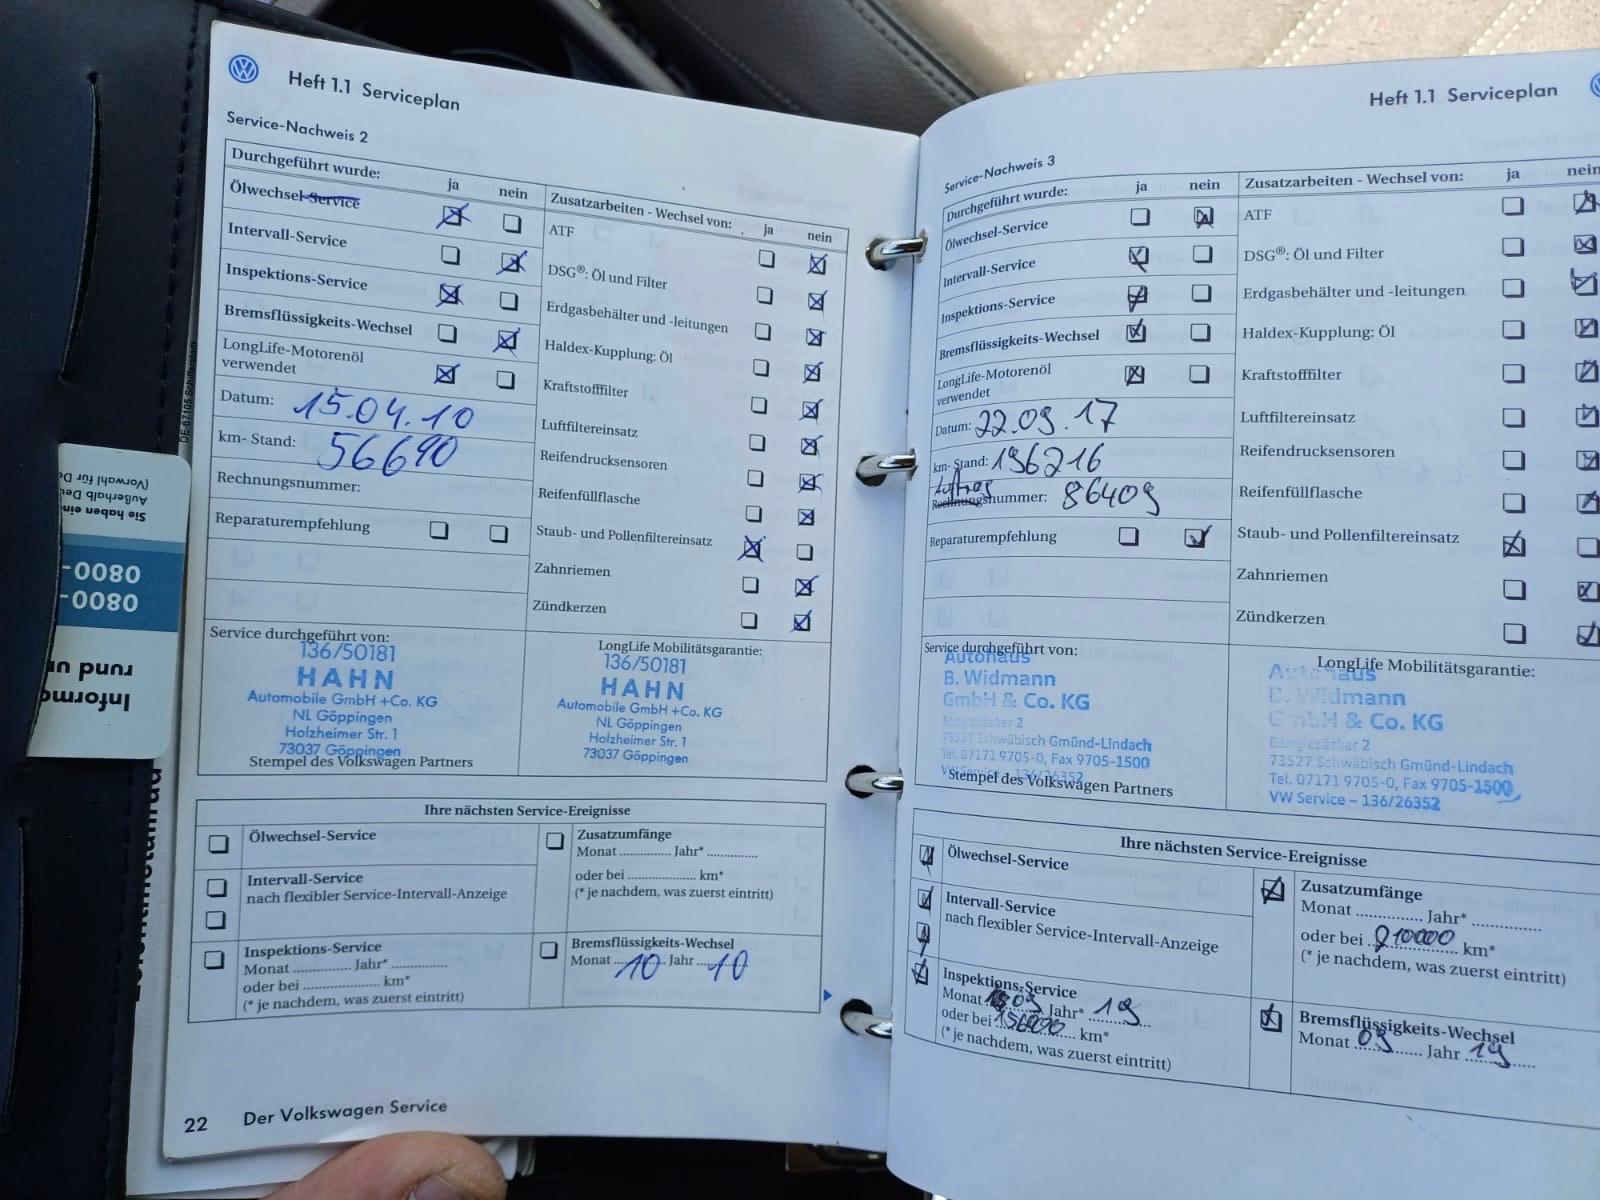 Heft 1.1 Serviceplan
Service-Nachweis 2
Durchgeführt wurde: ja nein
Ölwechsel-Service
Intervall-Service
Inspektions-Service
Bremsflüssigkeits-Wechsel
LongLife-Motorenöl
verwendet
Datum: 15.04.10
km- Stand: 56690
Rechnungsnummer:
Reparaturempfehlung
Zusatzarbeiten - Wechsel von: ja nein
ATF
DSG®: Öl und Filter
Erdgasbehälter und -leitungen
Haldex-Kupplung: Öl
Kraftstofffilter
Luftfiltereinsatz
Reifendrucksensoren
Reifenfüllflasche
Staub- und Pollenfiltereinsatz
Zahnriemen
Zündkerzen
Service durchgeführt von:
136/50181
HAHN
Automobile GmbH +Co. KG
NL Göppingen
Holzheimer Str. 1
73037 Göppingen
Stempel des Volkswagen Partners
LongLife Mobilitätsgarantie:
136/50181
HAHN
Automobile GmbH +Co. KG
NL Göppingen
Holzheimer Str. 1
73037 Göppingen
Ihre nächsten Service-Ereignisse
Ölwechsel-Service
Intervall-Service
nach flexibler Service-Intervall-Anzeige
Inspektions-Service
Monat ............... Jahr* ...............
oder bei .................... km*
(* je nachdem, was zuerst eintritt)
Zusatzumfänge
Monat ............... Jahr* ...............
oder bei .................... km*
(* je nachdem, was zuerst eintritt)
Bremsflüssigkeits-Wechsel
Monat 10 Jahr 10
22 Der Volkswagen Service
Heft 1.1 Serviceplan
Service-Nachweis 3
Durchgeführt wurde: ja nein
Ölwechsel-Service
Intervall-Service
Inspektions-Service
Bremsflüssigkeits-Wechsel
LongLife-Motorenöl
verwendet
Datum: 22.09.17
km- Stand: 196216
Auftrags
Rechnungsnummer: 86409
Reparaturempfehlung
Zusatzarbeiten - Wechsel von: ja nein
ATF
DSG®: Öl und Filter
Erdgasbehälter und -leitungen
Haldex-Kupplung: Öl
Kraftstofffilter
Luftfiltereinsatz
Reifendrucksensoren
Reifenfüllflasche
Staub- und Pollenfiltereinsatz
Zahnriemen
Zündkerzen
Service durchgeführt von:
Autohaus
B. Widmann
GmbH & Co. KG
Bänglesäcker 2
73527 Schwäbisch Gmünd-Lindach
Tel. 07171 9705-0, Fax 9705-1500
VW Service – 136/26352
Stempel des Volkswagen Partners
LongLife Mobilitätsgarantie:
Autohaus
B. Widmann
GmbH & Co. KG
Bänglesäcker 2
73527 Schwäbisch Gmünd-Lindach
Tel. 07171 9705-0, Fax 9705-1500
VW Service – 136/26352
Ihre nächsten Service-Ereignisse
Ölwechsel-Service
Intervall-Service
nach flexibler Service-Intervall-Anzeige
Inspektions-Service
Monat 09 Jahr* 19
oder bei km*
(* je nachdem, was zuerst eintritt)
Zusatzumfänge
Monat ............... Jahr* ...............
oder bei 210000 km*
(* je nachdem, was zuerst eintritt)
Bremsflüssigkeits-Wechsel
Monat 09 Jahr 19
DE-67105 Schifferstadt
Informa
rund u
0800-
0800-
Sie haben ein
Außerhalb De
(Vorwahl für D